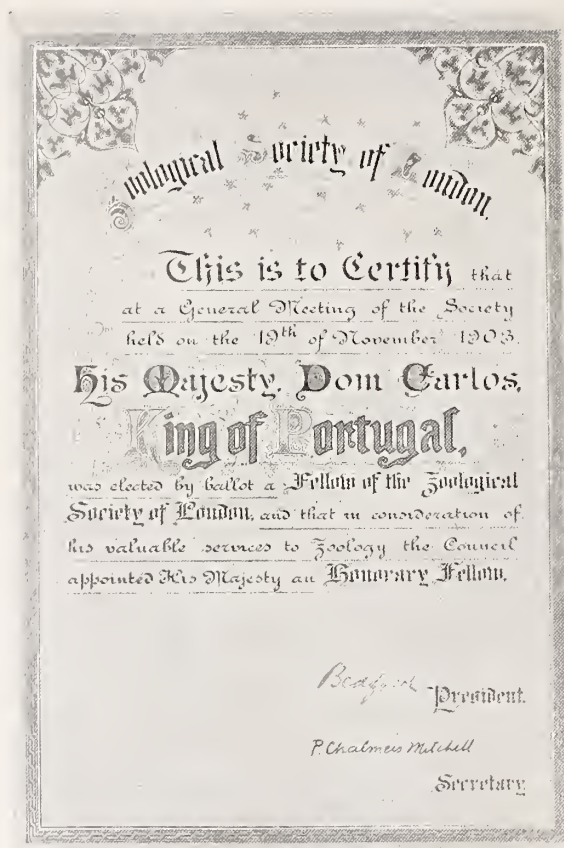 Zoological Society of London.
This is to Certify that
at a General Meeting of the Society
held on the 19th of November 1903.
His Majesty, Dom Carlos,
King of Portugal,
was elected by ballot a Fellow of the Zoological
Society of London, and that in consideration of
his valuable services to Zoology the Council
appointed His Majesty an Honorary Fellow.
Bedford President.
P. Chalmers Mitchell
Secretary